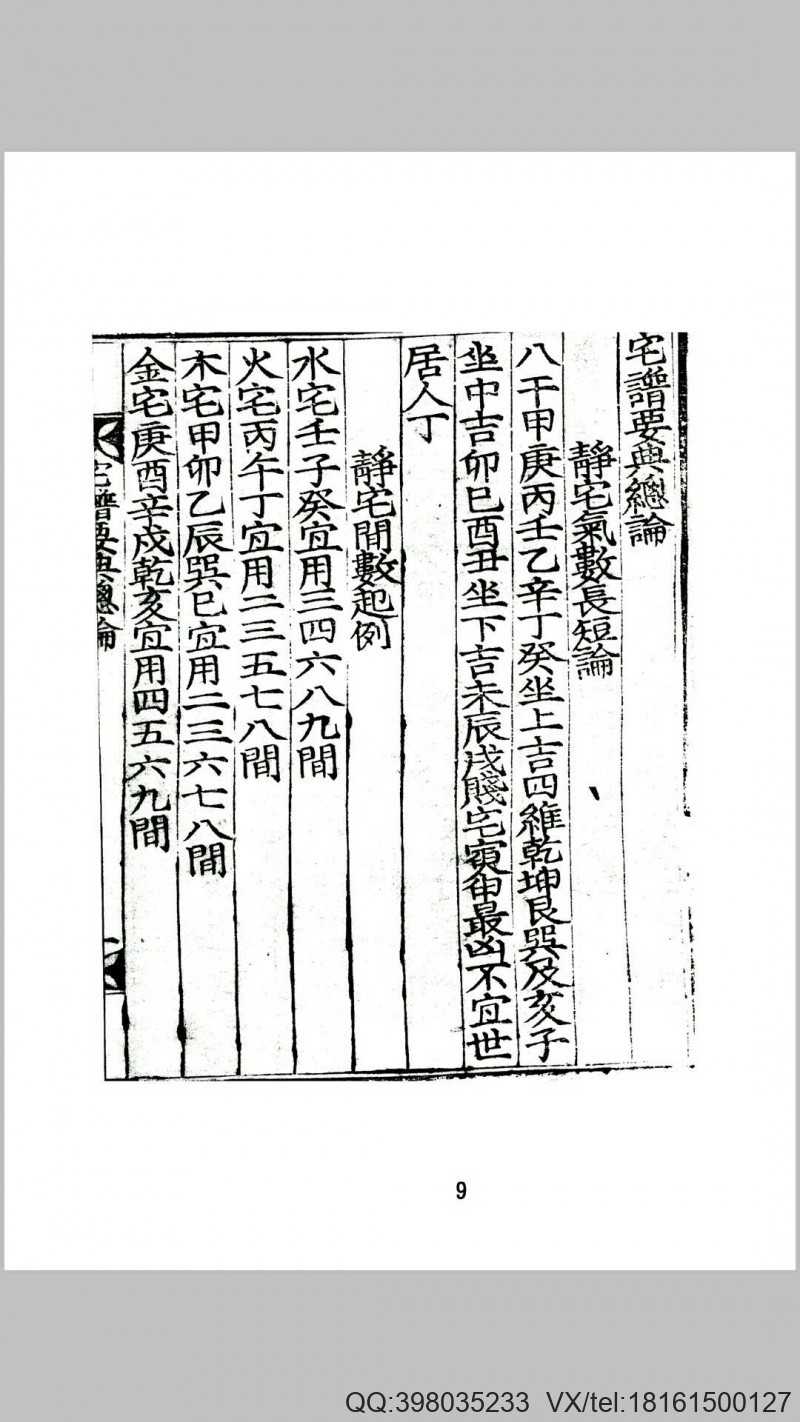 宅譜要典總論
靜宅氣數長短論
八干甲庚丙壬乙辛丁癸坐上吉四維乾坤艮巽及亥子
坐中吉卯巳酉丑坐下吉未辰戌賤宅寅申最凶不宜世
居人丁
靜宅間數起例
水宅壬子癸宜用三四六八九間
火宅丙午丁宜用二三五七八間
木宅甲卯乙辰巽巳宜用二三六七八間
金宅庚酉辛戌乾亥宜用四五六九間
宅譜要典總論
9
QQ:398035233 VX/tel:18161500127